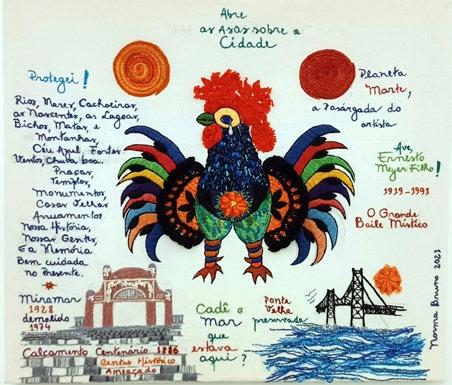 Abre
as Asas sobre a
Cidade
Protegei!
Rios, Mares, Cachoeiras,
as Nascentes, as Lagoas,
Bichos, Matas, e
Montanhas,
Céu Azul, Fortes
Ventos, Chuva boa.
Praças,
Templos,
Monumentos,
Casas Velhas
Arruamentos
Nossa História,
Nossas Gentes,
E a Memória
Bem cuidada
no Presente.
Miramar
1928
demolido
1974
Calçamento Centenário 1886
Centro Histórico
Ameaçado
Cadê o
Mar
que
estava
aqui?
Planeta
Marte,
a Pasárgada do
artista
Ave,
Ernesto
Meyer Filho!
1919-1991
O Grande
Baile Místico
Ponte
Velha
preservada
Norma Bruno 2023